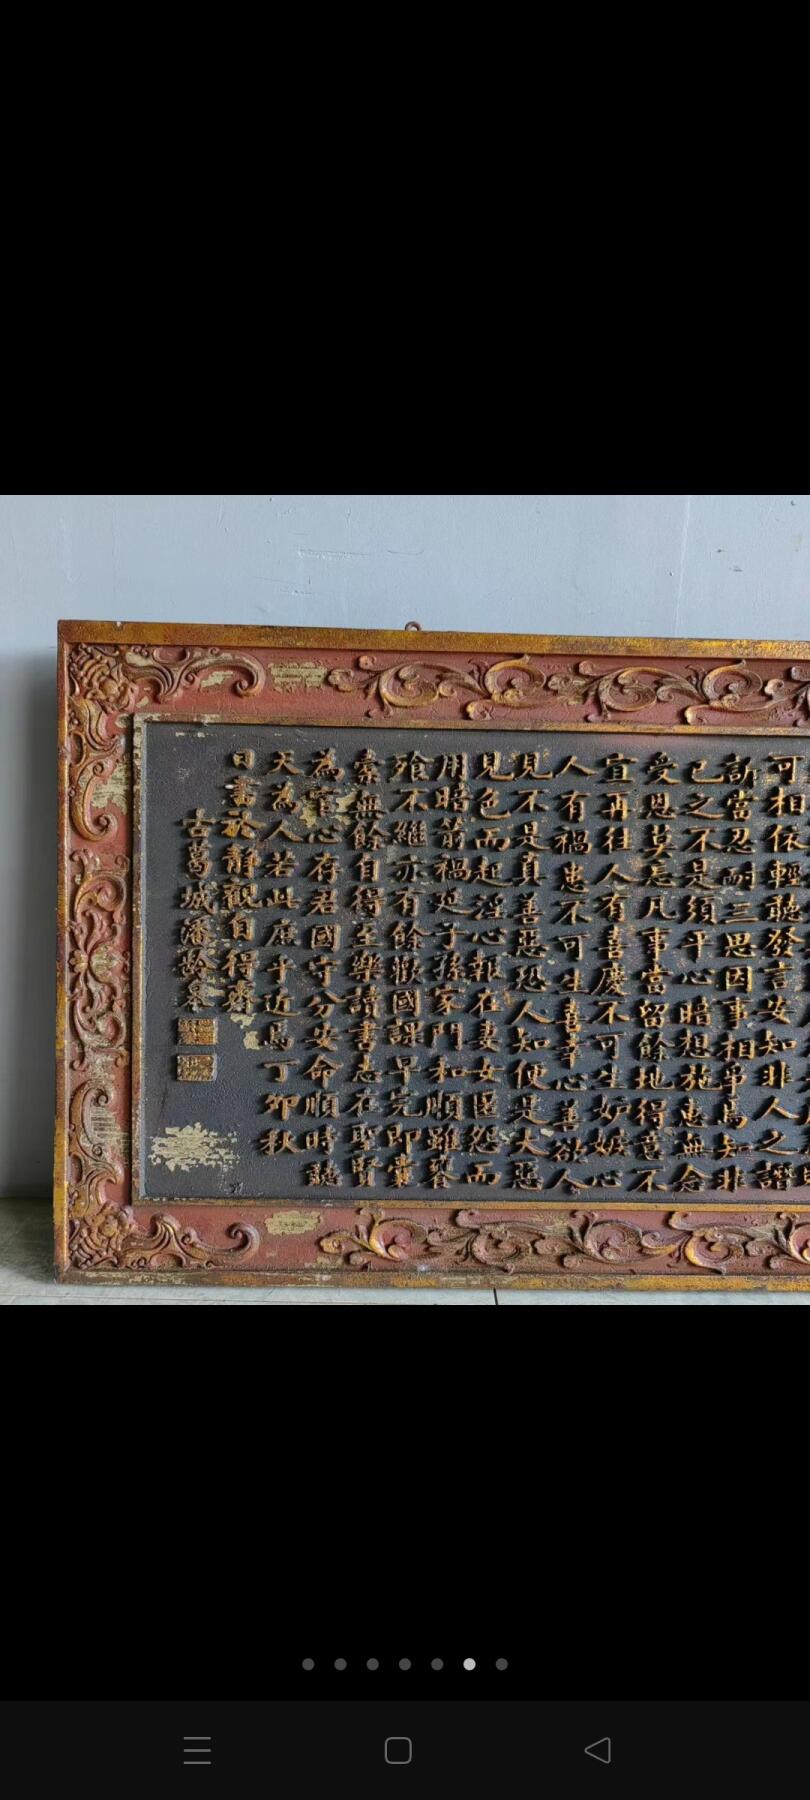 可相依輕聽發言安知非人之譖
訴當忍耐三思因事相爭焉知非
己之不是須平心暗想施惠無念
受恩莫忘凡事當留餘地得意不
宜再往人有喜慶不可生妒嫉心
人有禍患不可生喜幸心善欲人
見不是真善惡恐人知便是大惡
見色而起淫心報在妻女匿怨而
用暗箭禍延子孫家門和順雖饔
飧不繼亦有餘歡國課早完即囊
橐無餘自得至樂讀書志在聖賢
為官心存君國守分安命順時聽
天為人若此庶乎近焉丁卯秋
日書於靜觀自得齋
古葛城潘齡皋